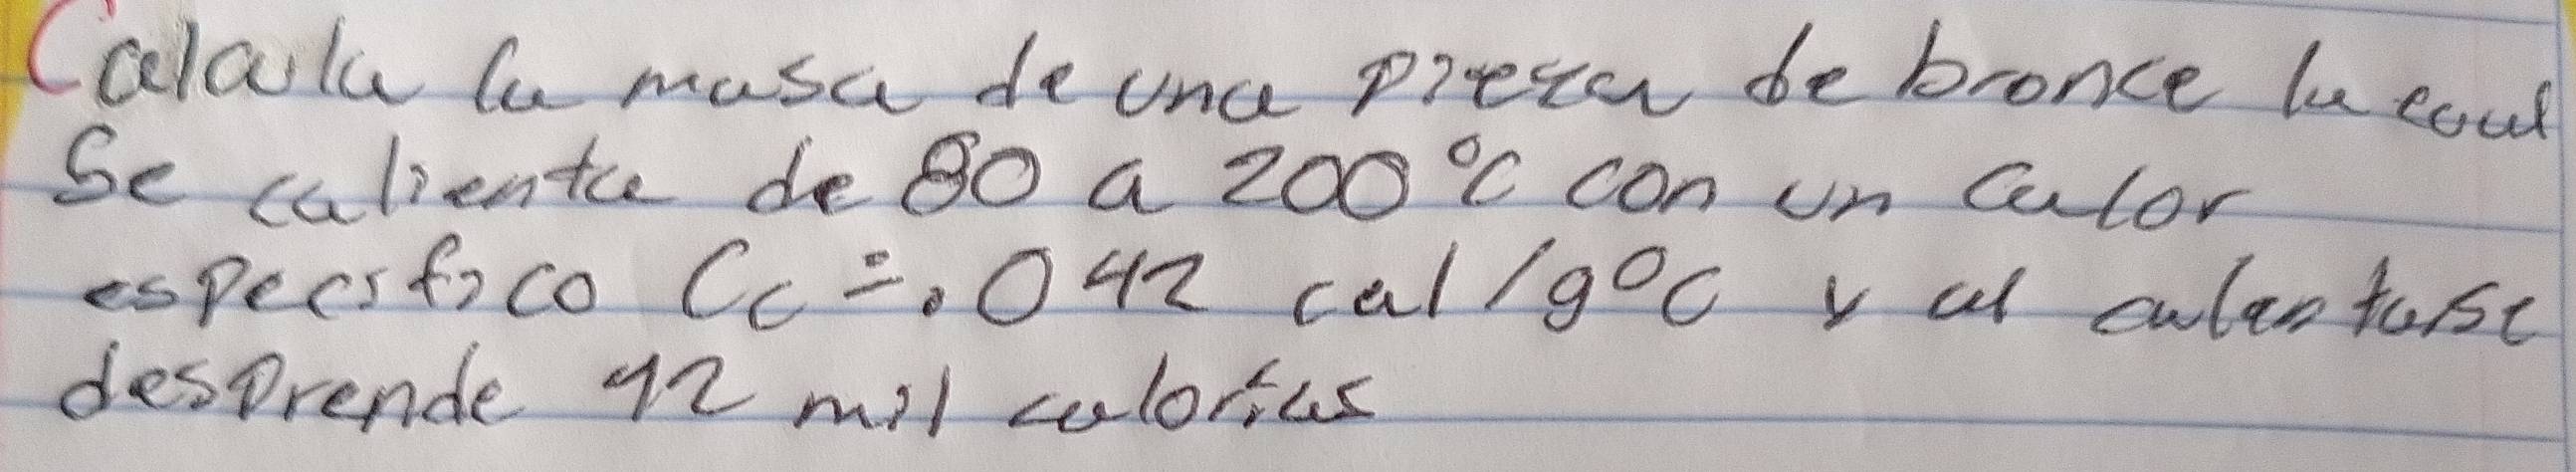 Calcula la masa de una pieza de bronce la cual
Se calienta de 80 a 200 °C con un Calor
especifico Cc = .042 cal/g°C y al calentarse
desprende 42 mil calorías